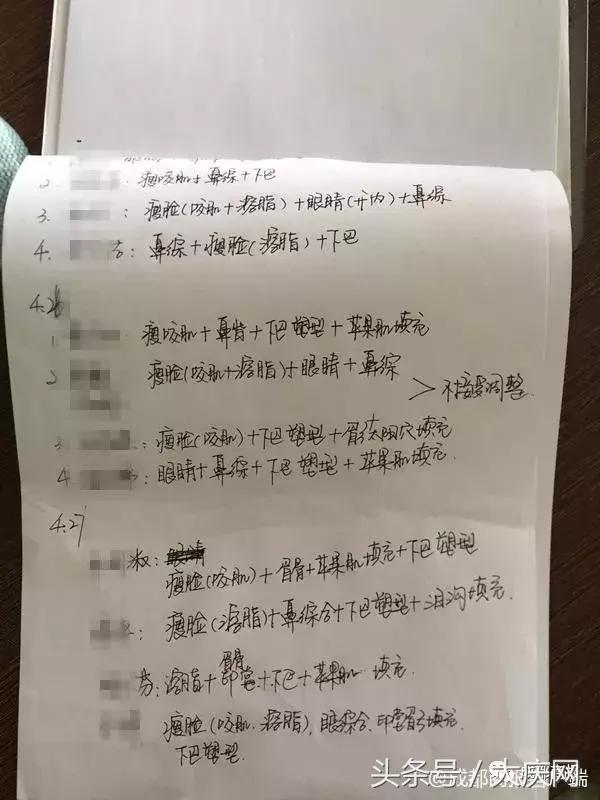 2. 瘦咬肌+鼻综+下巴
3. : 瘦脸(咬肌+溶脂)+眼睛(开内)+鼻综
4. : 鼻综+瘦脸(溶脂)+下巴
4.26
1. 瘦咬肌+鼻背+下巴塑型+苹果肌填充
2 瘦脸(咬肌+溶脂)+眼睛+鼻综
> 不接受调整
3. : 瘦脸(咬肌)+下巴塑型+太阳穴填充
4. : 眼睛+鼻综+下巴塑型+苹果肌填充.
4.27
: 瘦脸(咬肌)+眉骨+苹果肌填充+下巴塑型
: 瘦脸(溶脂)+鼻综合+下巴塑型+泪沟填充.
眉骨
芬: 溶脂+印堂+下巴+苹果肌 填充.
瘦脸(咬肌.溶脂), 眼综合、印堂眉弓填充.
下巴塑型.
头条号/大房网